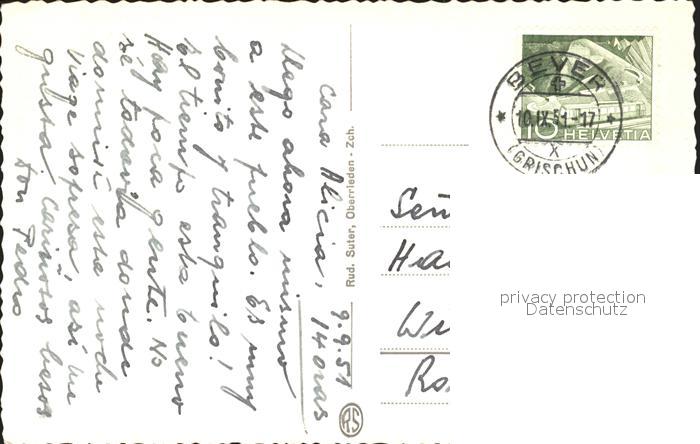 9.9.51
Cara Alicia, 14 oras
Llego ahora mismo
a este pueblo. Es muy
bonito y tranquilo!
El tiempo esta bueno
Hay poca gente. No
sé todavía donde
dormiré esta noche
Viage sopresa, así me
gusta. Cariñosos besos
Don Pedro
Rud. Suter, Oberrieden - Zch.
RS
BEVER
10.IX.51-17
X
(GRISCHUN)
10 HELVETIA
Señ
privacy protection
Datenschutz